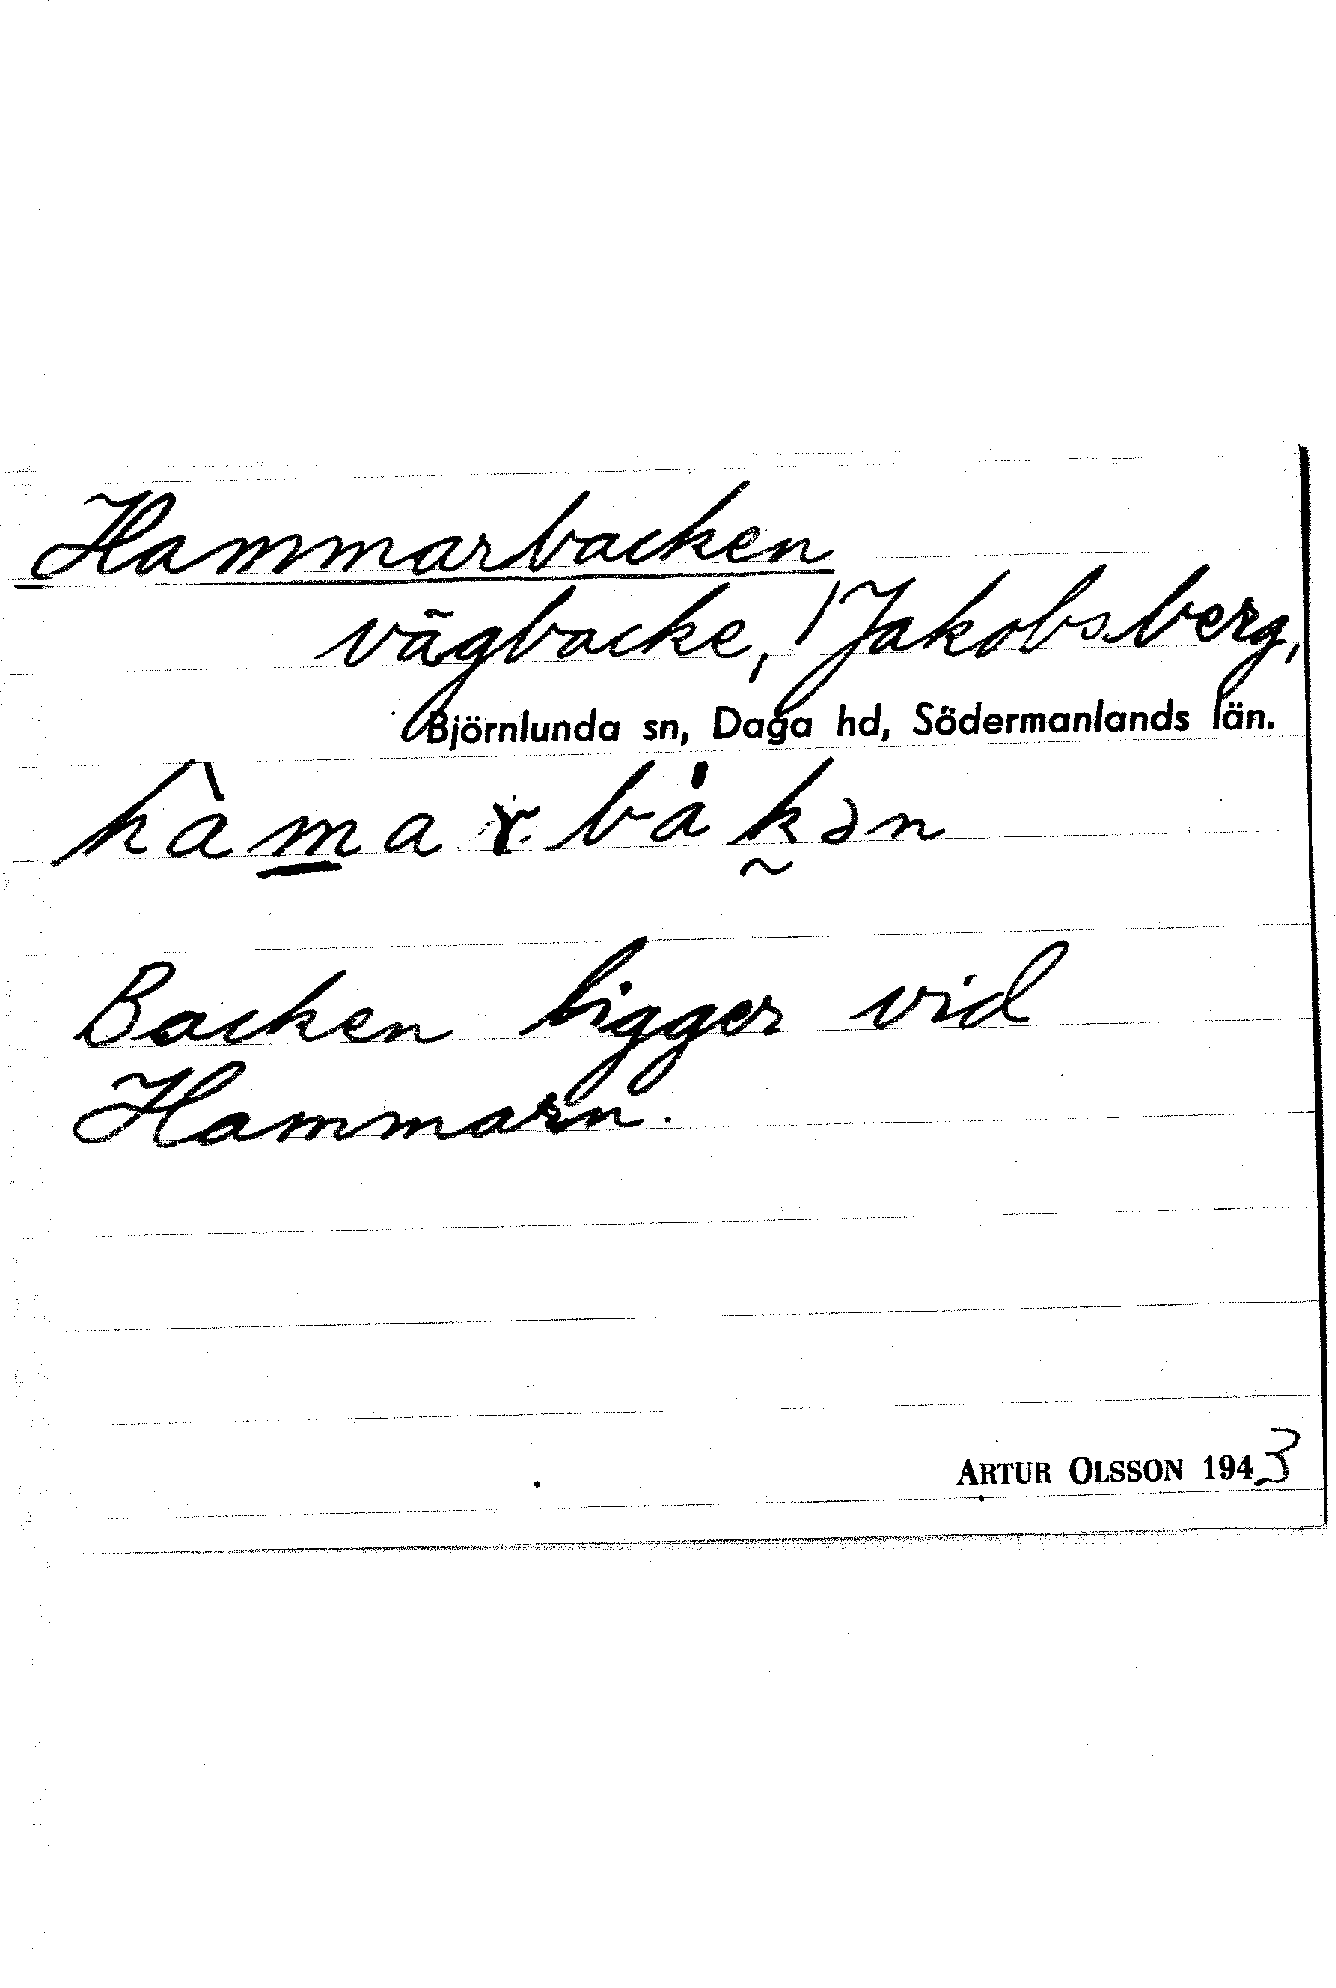 Hammarbacken
vägbacke, / Jakobsberg,
Björnlunda sn, Daga hd, Södermanlands län.
hàmarbȧkən
Backen ligger vid
Hammarn.
ARTUR OLSSON 1943